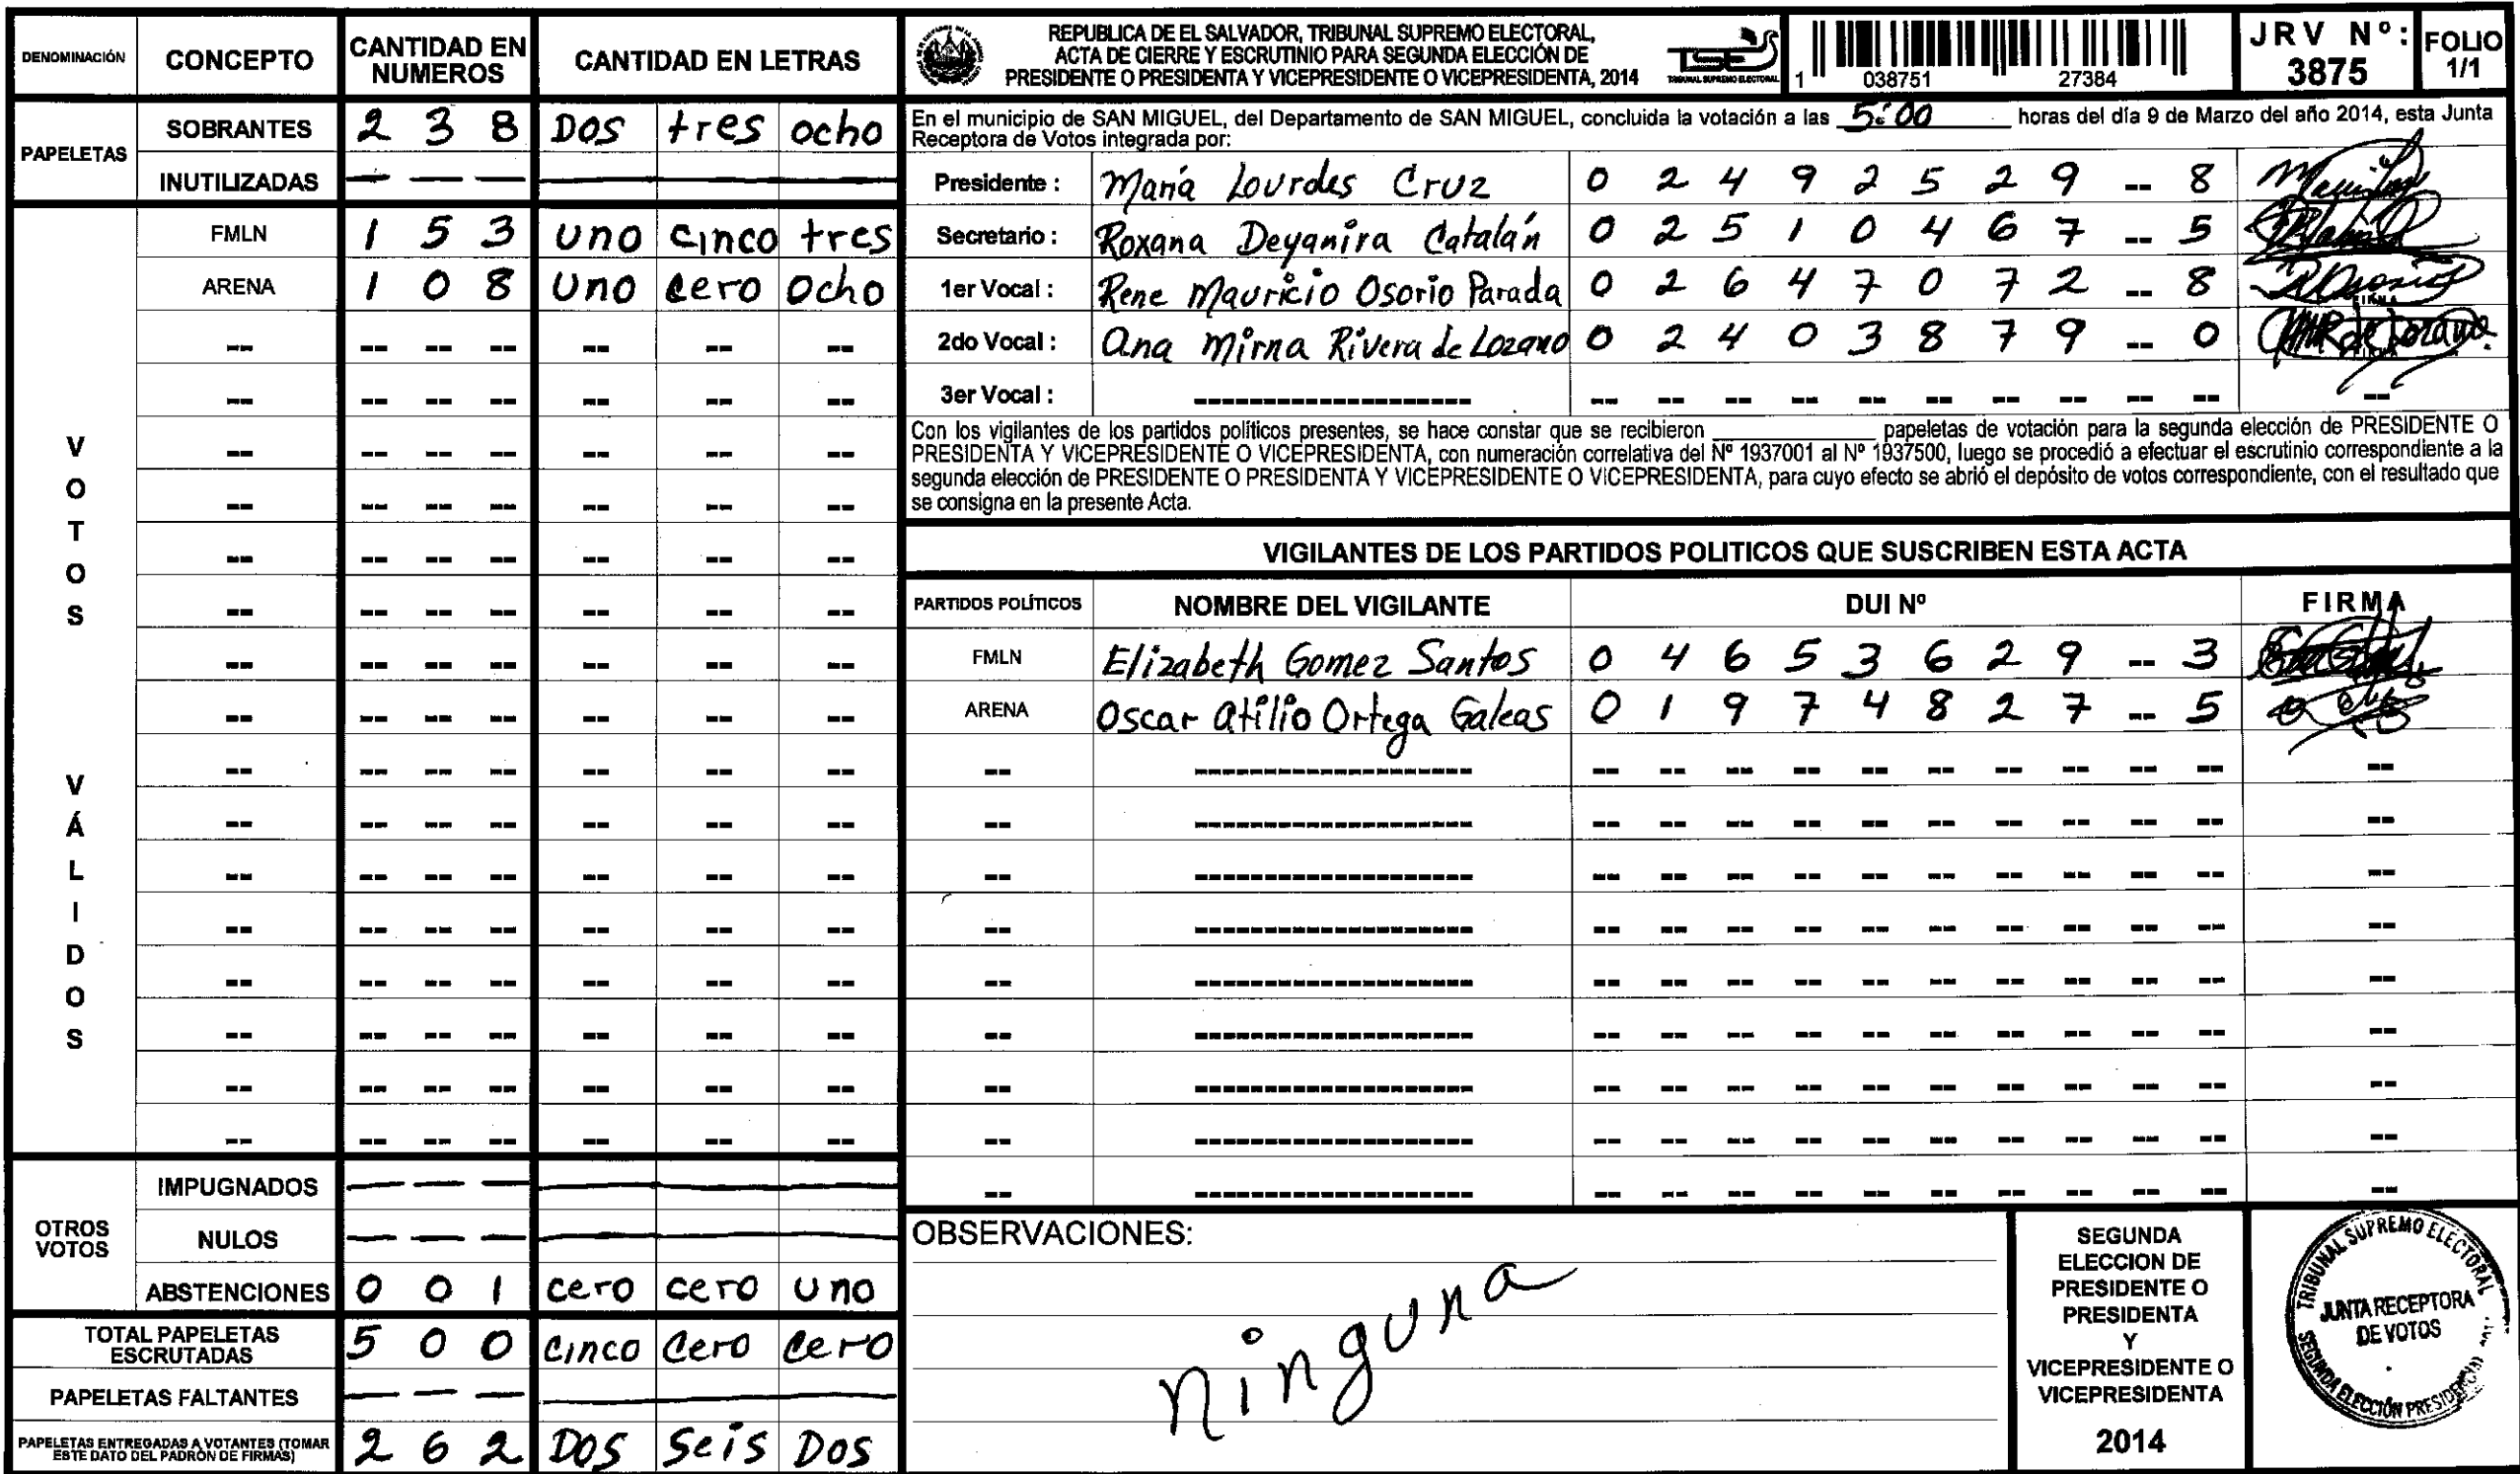 DENOMINACIÓN CONCEPTO CANTIDAD EN NUMEROS CANTIDAD EN LETRAS
PAPELETAS
SOBRANTES 2 3 8 Dos tres ocho
INUTILIZADAS — — —
VOTOS VÁLIDOS
FMLN 1 5 3 uno cinco tres
ARENA 1 0 8 uno cero ocho
OTROS VOTOS
IMPUGNADOS — — —
NULOS — — —
ABSTENCIONES 0 0 1 cero cero uno
TOTAL PAPELETAS ESCRUTADAS 5 0 0 cinco cero cero
PAPELETAS FALTANTES — — —
PAPELETAS ENTREGADAS A VOTANTES (TOMAR ESTE DATO DEL PADRÓN DE FIRMAS) 2 6 2 Dos Seis Dos
REPUBLICA DE EL SALVADOR, TRIBUNAL SUPREMO ELECTORAL,
ACTA DE CIERRE Y ESCRUTINIO PARA SEGUNDA ELECCIÓN DE
PRESIDENTE O PRESIDENTA Y VICEPRESIDENTE O VICEPRESIDENTA, 2014
TSE
TRIBUNAL SUPREMO ELECTORAL
1 038751 27384
JRV Nº: 3875
FOLIO 1/1
En el municipio de SAN MIGUEL, del Departamento de SAN MIGUEL, concluida la votación a las 5:00 horas del día 9 de Marzo del año 2014, esta Junta
Receptora de Votos integrada por:
Presidente : María Lourdes Cruz 0 2 4 9 2 5 2 9 -- 8
Secretario : Roxana Deyanira Catalán 0 2 5 1 0 4 6 7 -- 5
1er Vocal : Rene Mauricio Osorio Parada 0 2 6 4 7 0 7 2 -- 8
2do Vocal : Ana Mirna Rivera de Lozano 0 2 4 0 3 8 7 9 -- 0
3er Vocal :
Con los vigilantes de los partidos políticos presentes, se hace constar que se recibieron ____________ papeletas de votación para la segunda elección de PRESIDENTE O
PRESIDENTA Y VICEPRESIDENTE O VICEPRESIDENTA, con numeración correlativa del Nº 1937001 al Nº 1937500, luego se procedió a efectuar el escrutinio correspondiente a la
segunda elección de PRESIDENTE O PRESIDENTA Y VICEPRESIDENTE O VICEPRESIDENTA, para cuyo efecto se abrió el depósito de votos correspondiente, con el resultado que
se consigna en la presente Acta.
VIGILANTES DE LOS PARTIDOS POLITICOS QUE SUSCRIBEN ESTA ACTA
PARTIDOS POLÍTICOS NOMBRE DEL VIGILANTE DUI Nº FIRMA
FMLN Elizabeth Gomez Santos 0 4 6 5 3 6 2 9 -- 3
ARENA Oscar Atilio Ortega Galeas 0 1 9 7 4 8 2 7 -- 5
OBSERVACIONES:
ninguna
SEGUNDA
ELECCION DE
PRESIDENTE O
PRESIDENTA
Y
VICEPRESIDENTE O
VICEPRESIDENTA
2014
TRIBUNAL SUPREMO ELECTORAL
JUNTA RECEPTORA
DE VOTOS
SEGUNDA ELECCIÓN PRESIDENCIAL